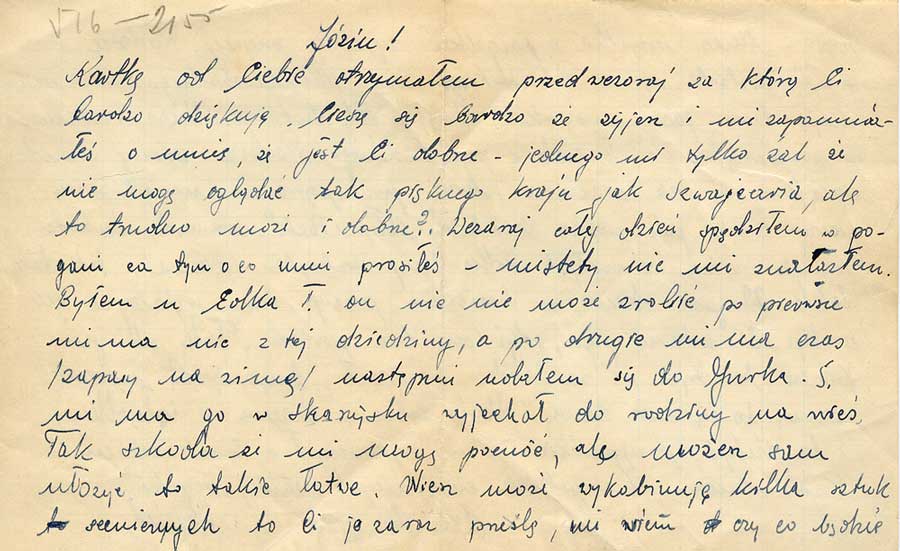 V16 – 2155
Józiu!
Kartkę od Ciebie otrzymałem przedwczoraj za którą Ci
bardzo dziękuję. Cieszę się bardzo że żyjesz i nie zapomnia-
łeś o mnie, że jest Ci dobrze – jednego mi tylko żal że
nie mogę oglądać tak pięknego kraju jak Szwajcaria, ale
to trudno może i dobrze?. Wczoraj cały dzień spędziłem w po-
goni za tym o co mnie prosiłeś – niestety nic nie znalazłem.
Byłem u Lolka T. on nic nie może zrobić po pierwsze
nie ma nic z tej dziedziny, a po drugie nie ma czas
/zapasy na zimę/ następnie udałem się do Jurka. S.
nie ma go w skaryjsku wyjechał do rodziny na wieś.
Tak szkoda że nie mogę pomóc, ale możesz sam
ułożyć to takie łatwe. Wiesz może wykombinuję kilka sztuk
scenicznych to Ci je zaraz prześlę, nie wiem czy co będzie